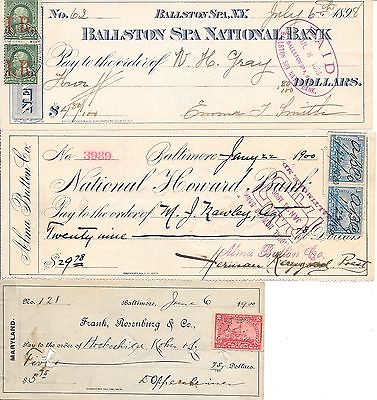 No. 62 BALLSTON SPA, N.Y. July 6th 1898
BALLSTON SPA NATIONAL BANK
Pay to the order of W. H. Gray
Four 20/100 DOLLARS.
$4 20/100 Emma F. Smith
I.R.
I.R.
PAID
No. 3989 Baltimore Jany 22 1900
National Howard Bank
Pay to the order of M. J. Rawley Agt
Twenty nine 78/100 Dollars
$29.78 Alma Button Co.
Herman Prest
Alma Button Co.
No. 121 Baltimore, June 6 1900
Frank, Rosenburg & Co.,
Pay to the order of Hochschild Kohn & Co
Five 75/ Dollars.
$5 75 D Oppenheimer
MARYLAND